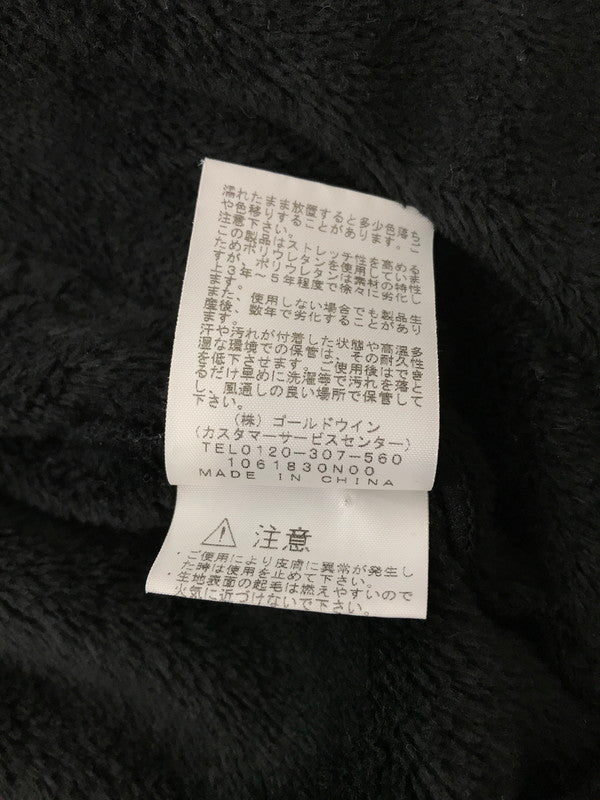 濡れたまま放置すると多少色落ち
や色移りすることがあります。ご
注意下さい。
この製品はストレッチ性を高める
ためポリウレタンを使用していま
すが、ポリウレタンは素材の特性
上3年～5年程度で徐々に劣化し
ます。
また、使用しない場合でも製品生
産後、数年で劣化することがあり
ます。
汗や汚れが付着した状態や高温多
湿な環境での保管は、その耐久性
を低下させます。ご使用後はでき
るだけ早めに洗濯等で汚れを落と
し、風通しの良い場所で保管して
下さい。
(株)ゴールドウイン
(カスタマーサービスセンター)
TEL0120-307-560
1061830N00
MADE IN CHINA
注意
・ご使用により皮膚に異常が発生し
た時は使用を止めて下さい。
・生地表面の起毛は燃えやすいので
火気に近づけないで下さい。